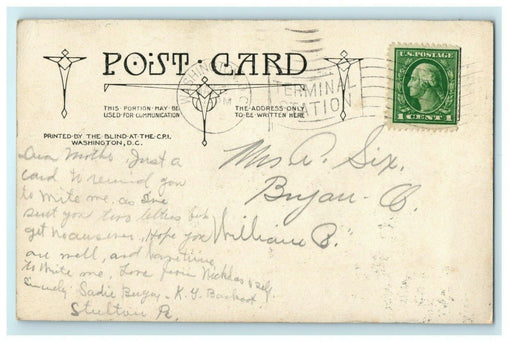 POST·CARD
THIS PORTION MAY BE
USED FOR COMMUNICATION
THE ADDRESS ONLY
TO BE WRITTEN HERE
PRINTED BY THE BLIND AT THE C.P.I.
WASHINGTON, D.C.
TERMINAL
STATION
U.S. POSTAGE
1 CENT 1
Dear Mother Just a
card to remind you
to write me, as
sent you two letters but
get no answer, Hope you
are well, and
to write me, Love from & self.
Sincerely Sadie
Mrs A. Six.
Bryan O.
Williams